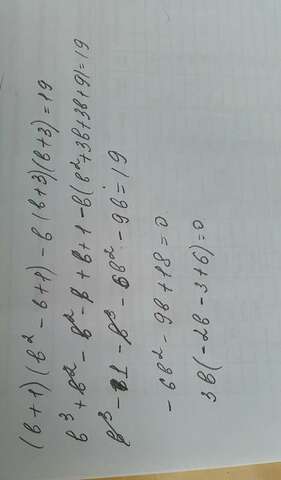 (b+1)(b²-b+1)-b(b+3)(b+3)=19
b³+b²-b²-b+b+1-b(b²+3b+3b+9)=19
b³-1-b³-6b²-9b=19
-6b²-9b+18=0
3b(-2b-3+6)=0